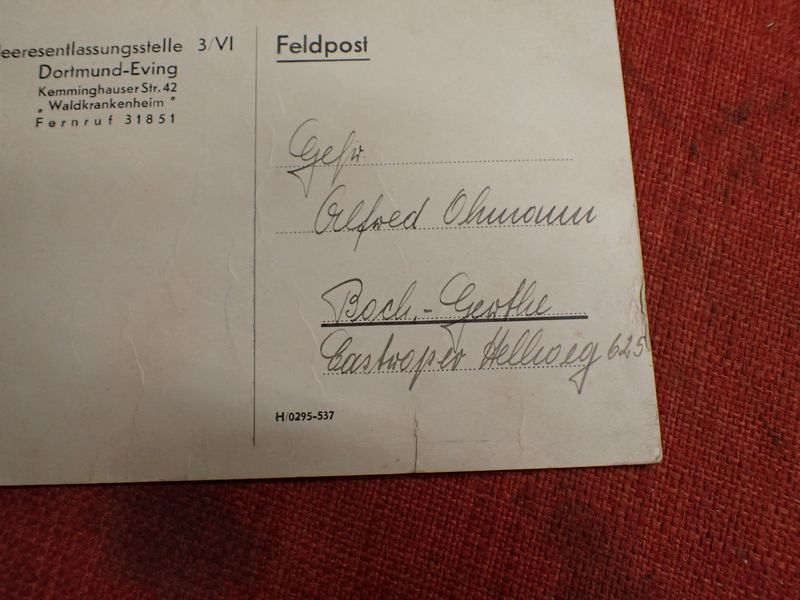 eeresentlassungsstelle 3/VI
Dortmund-Eving
Kemminghauser Str. 42
„Waldkrankenheim"
Fernruf 31851
Feldpost
Gefr.
Alfred Ohmann
Boch.-Gerthe
Castroper Hellweg 625
H/0295-537